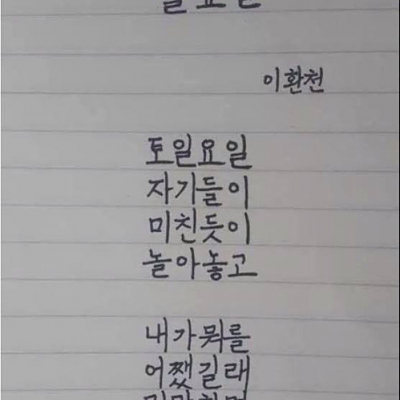 이환천
토일요일
자기들이
미친듯이
놀아놓고
내가뭐를
어쨌길래